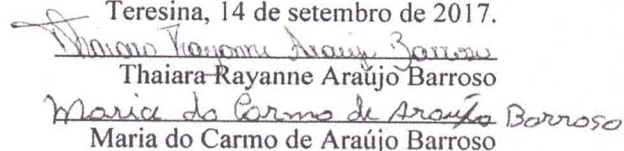 Teresina, 14 de setembro de 2017.
Thaiara Rayanne Araújo Barroso
Thaiara Rayanne Araújo Barroso
Maria do Carmo de Araújo Barroso
Maria do Carmo de Araújo Barroso